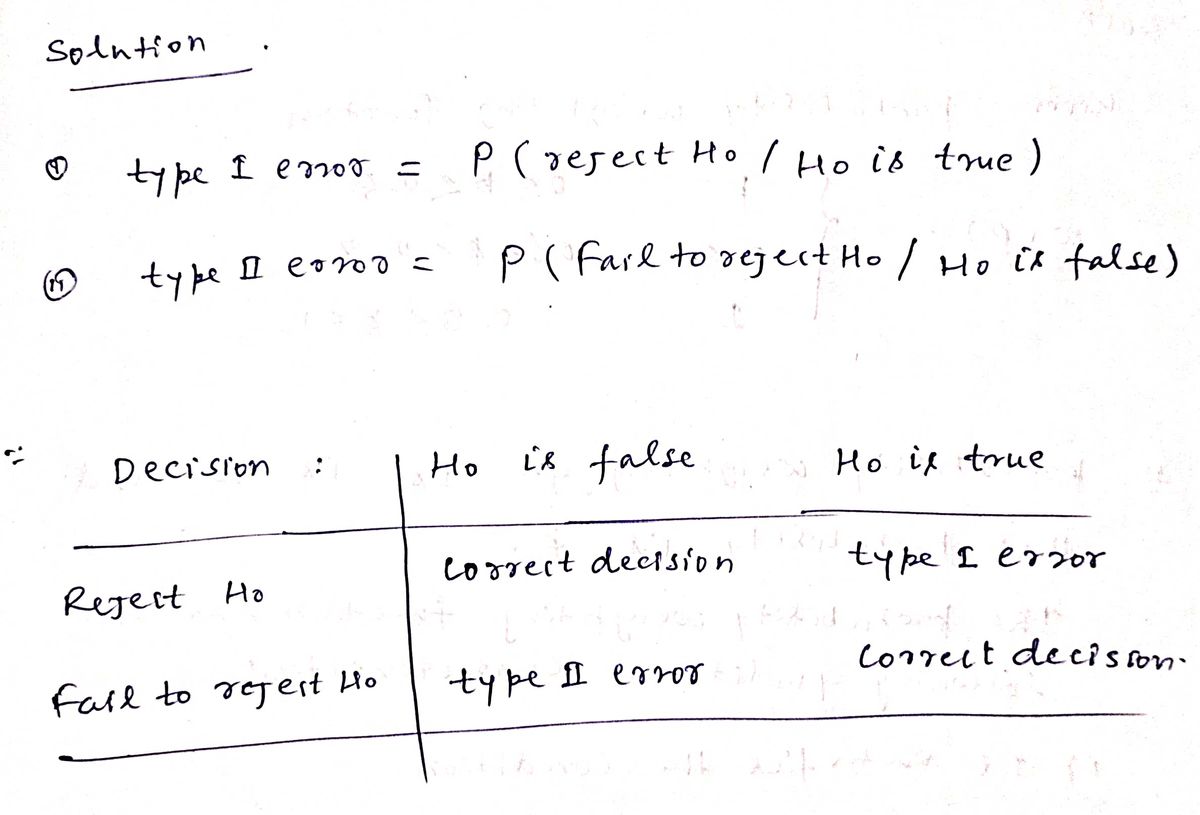 Solution .
① type I error = P ( reject Ho / Ho is true )
② type II error = P ( Fail to reject Ho / Ho is false)
Decision : Ho is false Ho is true
Reject Ho correct decision type I error
Fail to reject Ho type II error correct decision.